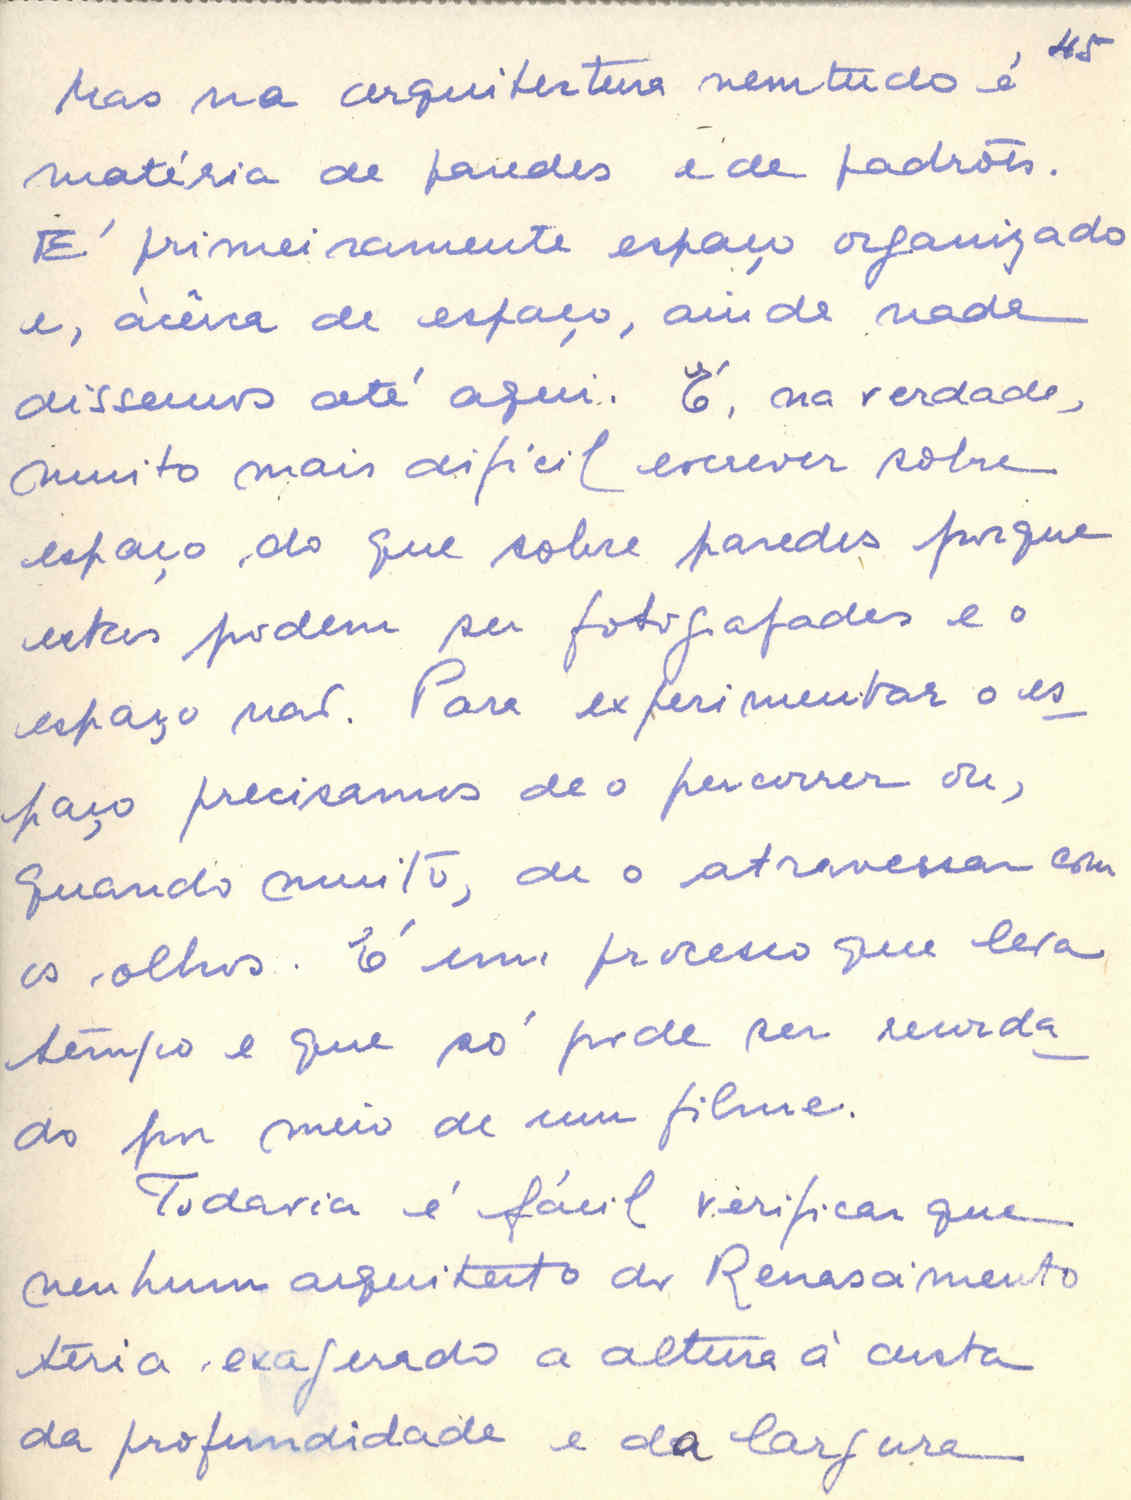 45
Mas na arquitectura nem tudo é
matéria de paredes e de padrões.
É primeiramente espaço organizado
e, àcêrca de espaço, ainda nada
dissemos até aqui. É, na verdade,
muito mais difícil escrever sobre
espaço do que sobre paredes porque
estas podem ser fotografadas e o
espaço não. Para experimentar o es-
paço precisamos de o percorrer ou,
quando muito, de o atravessar com
os olhos. É um processo que leva
tempo e que só pode ser recorda-
do por meio de um filme.
Todavia é fácil verificar que
nenhum arquitecto do Renascimento
teria exagerado a altura à custa
da profundidade e da largura